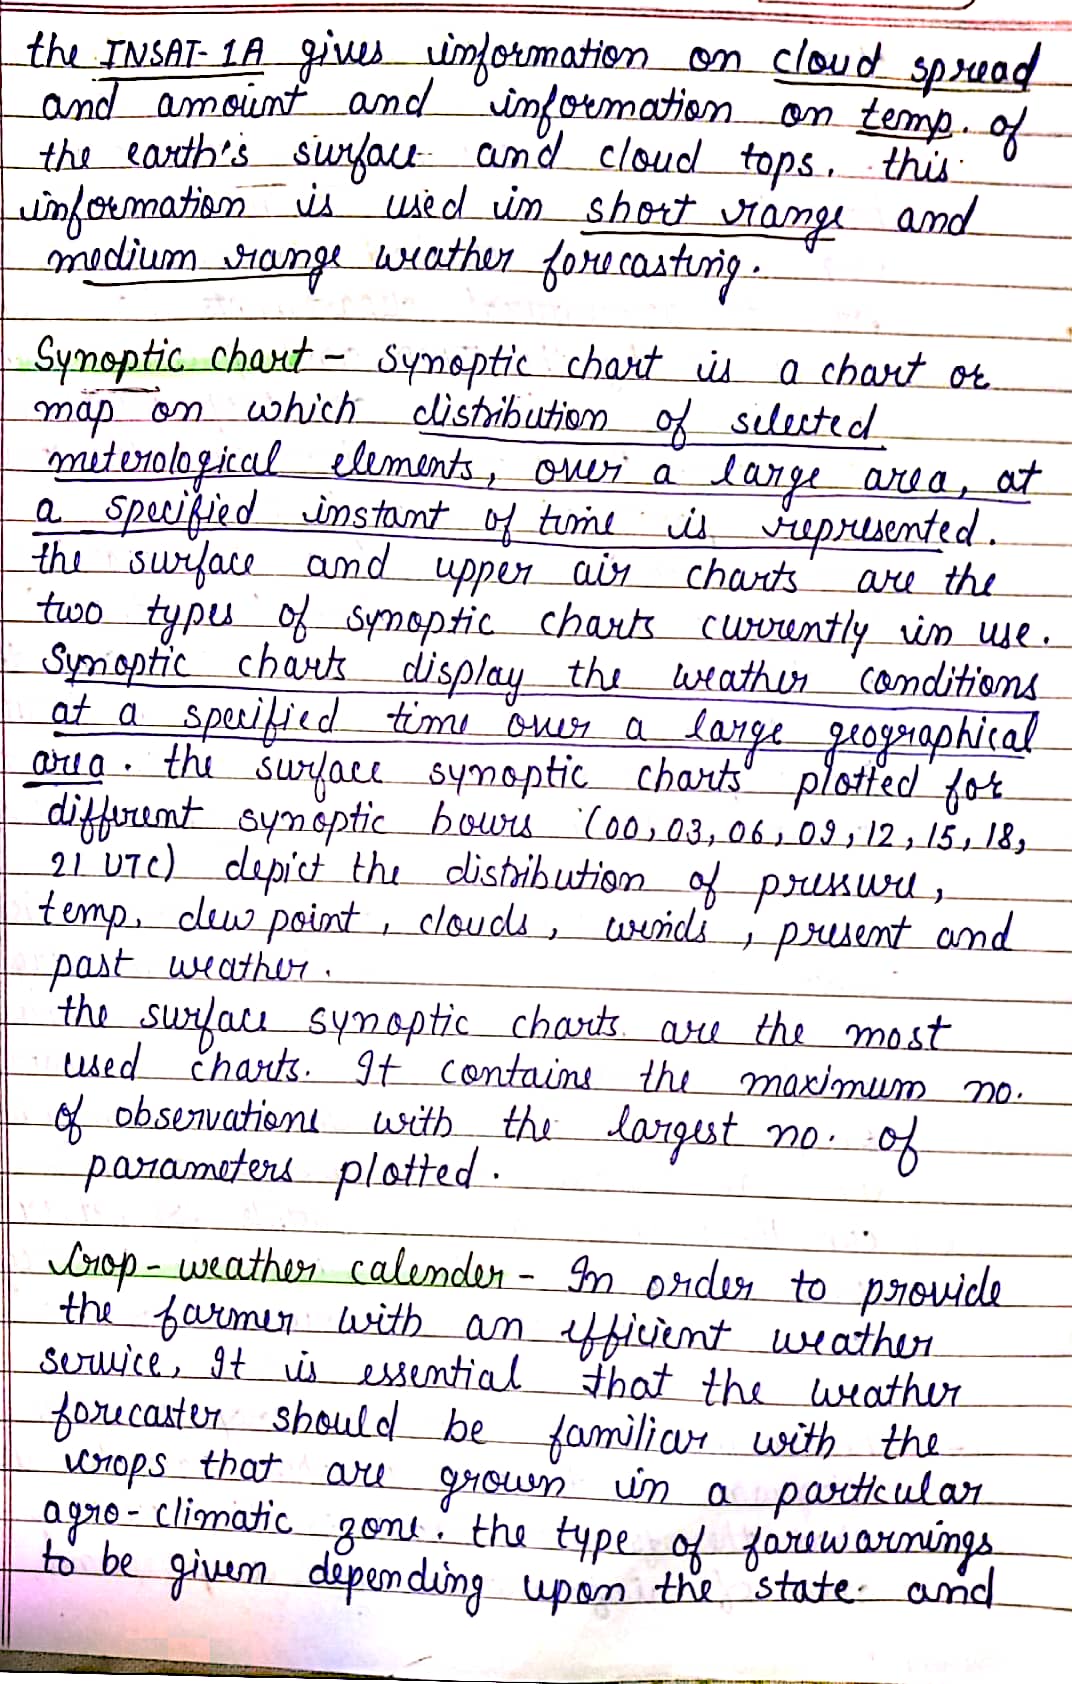 the INSAT-1A gives information on cloud spread
and amount and information on temp. of
the earth's surface and cloud tops. this
information is used in short range and
medium range weather forecasting.
Synoptic chart - Synoptic chart is a chart or
map on which distribution of selected
meterological elements, over a large area, at
a specified instant of time is represented.
the surface and upper air charts are the
two types of synoptic charts currently in use.
Synoptic charts display the weather conditions
at a specified time over a large geographical
area. the surface synoptic charts plotted for
different synoptic hours (00, 03, 06, 09, 12, 15, 18,
21 UTC) depict the distribution of pressure,
temp. dew point, clouds, winds, present and
past weather.
the surface synoptic charts are the most
used charts. It contains the maximum no.
of observations with the largest no. of
parameters plotted.
Crop-weather calender - In order to provide
the farmer with an efficient weather
service, It is essential that the weather
forecaster should be familiar with the
crops that are grown in a particular
agro-climatic zone. the type of forewarnings
to be given depending upon the state and